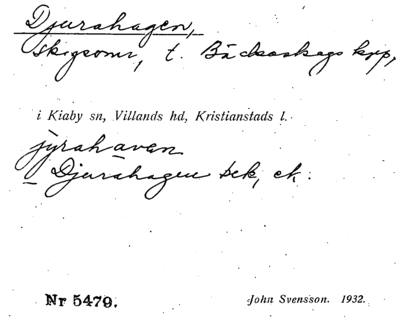 Djurahagen,
skogsomr, t. Bäckaskogs kgp,
i Kiaby sn, Villands hd, Kristianstads l.
jyrahaven
Djurahagen bek, ek.
Nr 5479.
John Svensson. 1932.